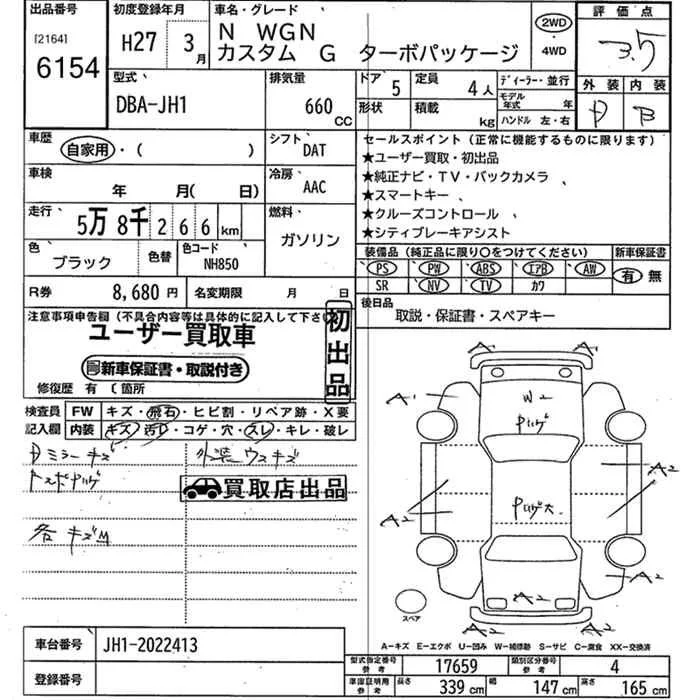 出品番号
[2164]
6154
初度登録年月
H27 3月
車名・グレード
N WGN
カスタム G ターボパッケージ
2WD
・
4WD
評価点
3.5
外装 内装
D B
型式
DBA-JH1
排気量
660
CC
ドア 5
形状
定員 4人
積載 kg
ディーラー・並行
モデル年式 年
ハンドル 左・右
車歴
自家用・( )
シフト
DAT
車検
年 月( 日)
冷房
AAC
走行
5万8千266km
燃料
ガソリン
色
ブラック
色替
色コード
NH850
R券 8,680円
名変期限 月 日
セールスポイント(正常に機能するものに限ります)
★ユーザー買取・初出品
★純正ナビ・TV・バックカメラ
★スマートキー
★クルーズコントロール
★シティブレーキアシスト
装備品(純正品に限り○をつけてください)
PS PW ABS エアB AW
SR NV TV カワ
新車保証書
有 無
後日品
取説・保証書・スペアキー
注意事項申告欄(不具合内容等は具体的に記入して下さい
ユーザー買取車
新車保証書・取説付き
初出品
修復歴 有( 箇所
検査員記入欄
FW キズ・飛石・ヒビ割・リペア跡・X要
内装 キズ・汚レ・コゲ・穴・スレ・キレ・破レ
Dミラーキズ
外装ウスキズ
買取店出品
各キズM
A
A
A1
W2
A2
A2
A2
A2
A2
A2
スペア
A=キズ E=エクボ U=凹み W=補修跡 S=サビ C=腐食 XX=交換済
車台番号 JH1-2022413
登録番号
型式指定番号
参考
17659
類別区分番号
参考
4
車庫証明用
参考
長さ 339cm
幅 147cm
高さ 165cm